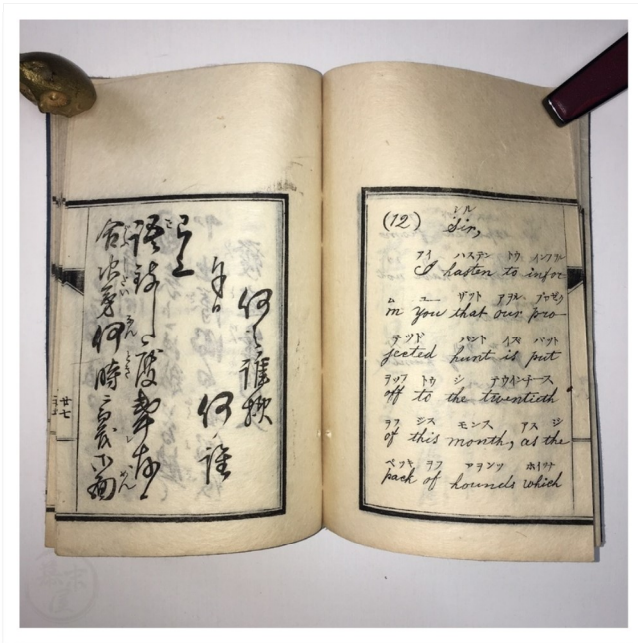 合次第何時ニ而も御面
語致し度奉存候
以上
月日 何ノ誰
何之誰様
廿七
シル
(12) Sir,
アイ ハステン トウ インフヲル
I hasten to infor
ム ユー ザット アヲル プロゼク
m You that our pro-
テッド ハント イズ パット
jected hunt is put
ヲッフ トウ ジ テウインチース
off to the twentieth
ヲフ ジス モンス アス ジ
of this month, as the
ペッキ ヲフ アヲンツ ホイッチ
pack of hounds which